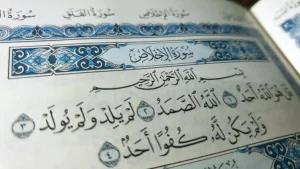 سُورَةُ الْإِخْلَاصِ سُورَةُ الْفَلَقِ
سُورَةُ الْإِخْلَاصِ
بِسْمِ اللَّهِ الرَّحْمَٰنِ الرَّحِيمِ
قُلْ هُوَ اللَّهُ أَحَدٌ ١ اللَّهُ الصَّمَدُ ٢ لَمْ يَلِدْ وَلَمْ يُولَدْ ٣
وَلَمْ يَكُنْ لَهُ كُفُوًا أَحَدٌ ٤